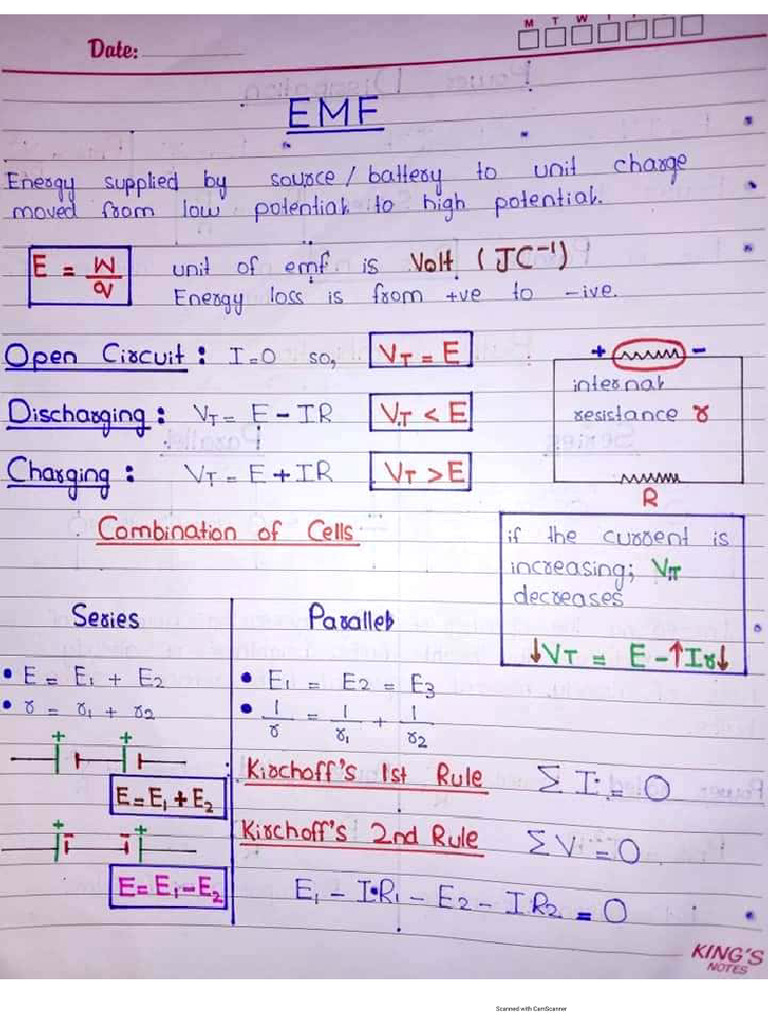 M T W
Date:
EMF
Energy supplied by source / battery to unit charge
moved from low potential to high potential.
E = W/Q
unit of emf is Volt (JC⁻¹)
Energy loss is from +ve to -ive.
Open Circuit : I=0 so, V_T = E
Discharging : V_T = E - IR V_T < E
Charging : V_T = E + IR V_T > E
+ -
internal
resistance r
R
Combination of Cells
if the current is
increasing; V_T
decreases
↓V_T = E - ↑Ir↓
Series
• E = E₁ + E₂
• r = r₁ + r₂
+ +
E = E₁ + E₂
+ +
E = E₁ - E₂
Parallel
• E₁ = E₂ = E₃
• 1/r = 1/r₁ + 1/r₂
Kirchoff's 1st Rule Σ I = 0
Kirchoff's 2nd Rule Σ V = 0
E₁ - I R₁ - E₂ - I R₂ = 0
KING'S
NOTES
Scanned with CamScanner